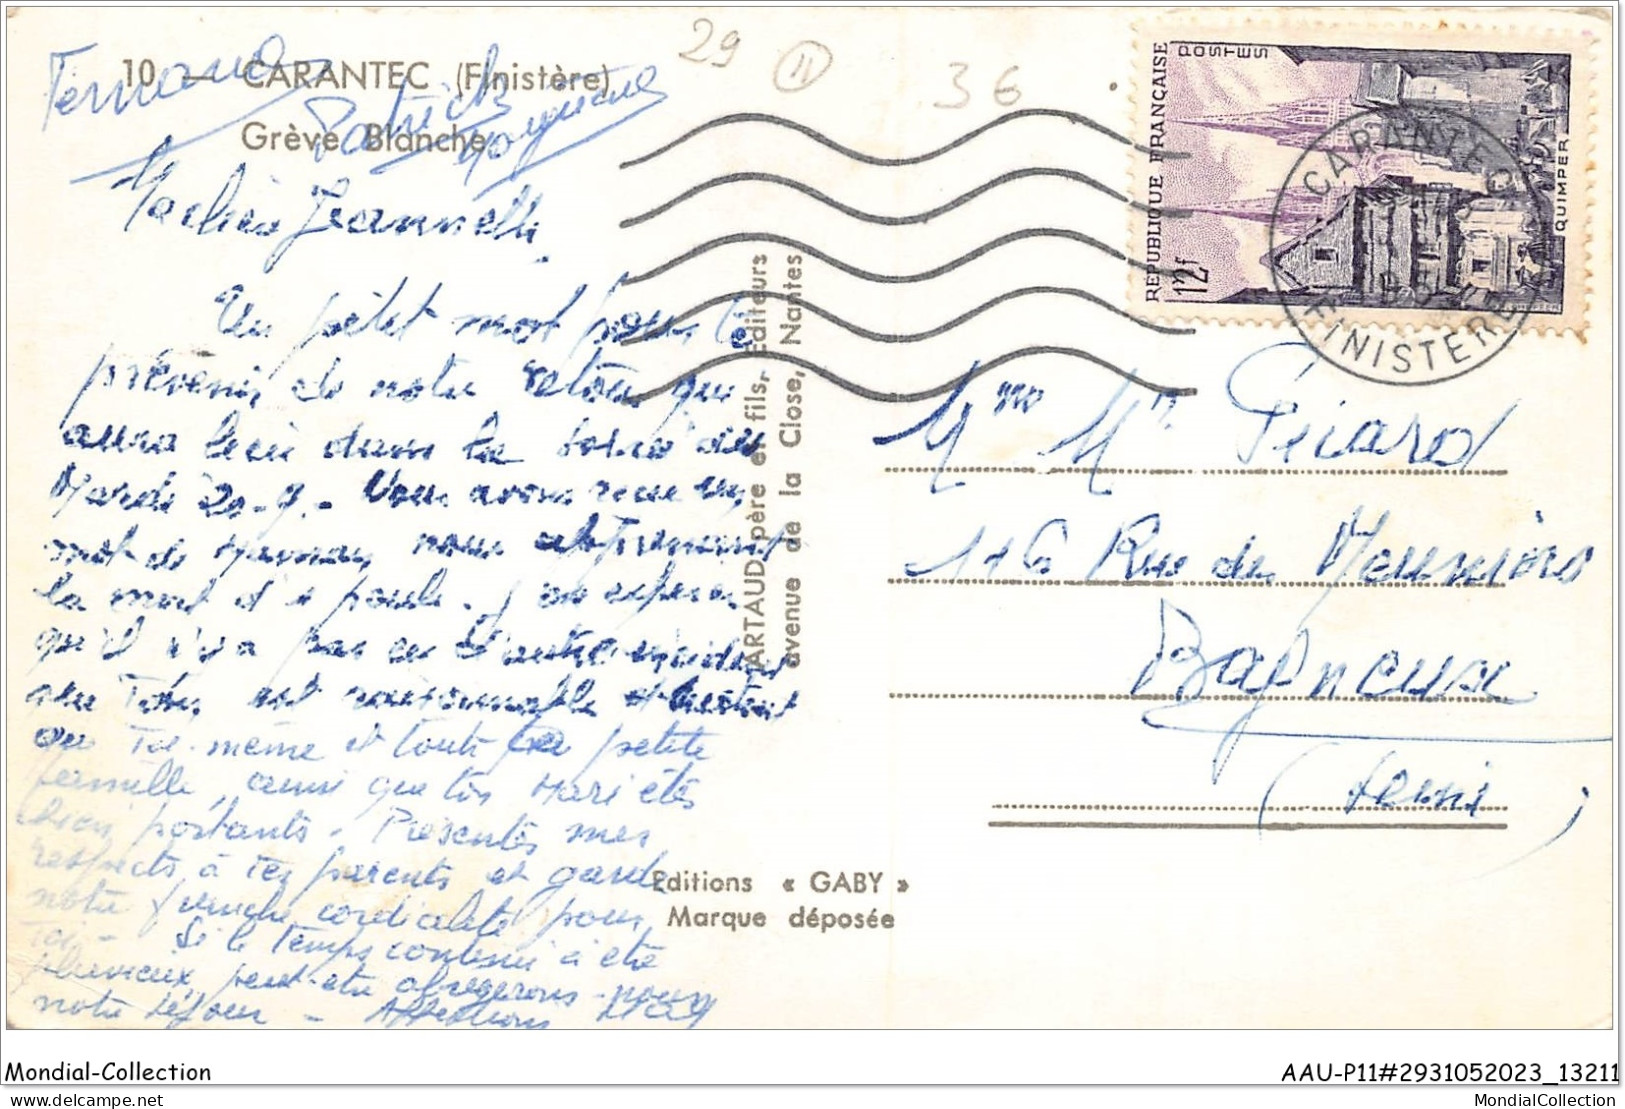 29 11 36
10 — CARANTEC (Finistère)
Grève Blanche
Fernand
Patrick
REPUBLIQUE FRANÇAISE
POSTES
12f
QUIMPER
CARANTEC
FINISTERE
Un petit mot pour te
prévenir de notre retour qui
aura lieu dans la soirée du
Mardi 20-9. - Nous avons reçu un
mot de nous apprenant
la mort d' poule. J'ose espérer
qu'il n'y a pas eu d'autre incident
que Tony est raisonnable et surtout
que Toi-même et toute ta petite
famille, ainsi que ton Mari êtes
bien portants - Présentes mes
respects à tes parents et garde
notre franche cordialité pour
Toi - Si le Temps continue à être
pluvieux, peut-être abrégerons-nous
notre séjour - Affections
ARTAUD père et fils, Editeurs
avenue de la Close, Nantes
Mme Mr Picard
116 Rue des Meuniers
Bagneux
(Seine)
Editions « GABY »
Marque déposée
Mondial-Collection
AAU-P11#2931052023_13211
MondialCollection